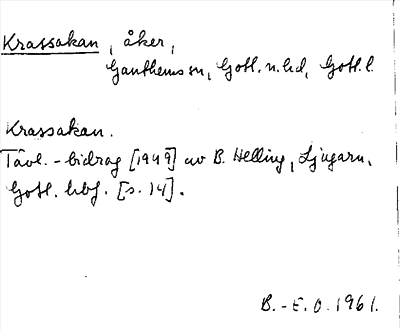 Krassakan, åker,
Ganthems sn, Gotl. n. hd, Gotl. l.
Krassakan.
Tävl. - bidrag [1949] av B. Helling, Ljugarn,
Gotl. hbf. [s. 14].
B.-E. O. 1961.